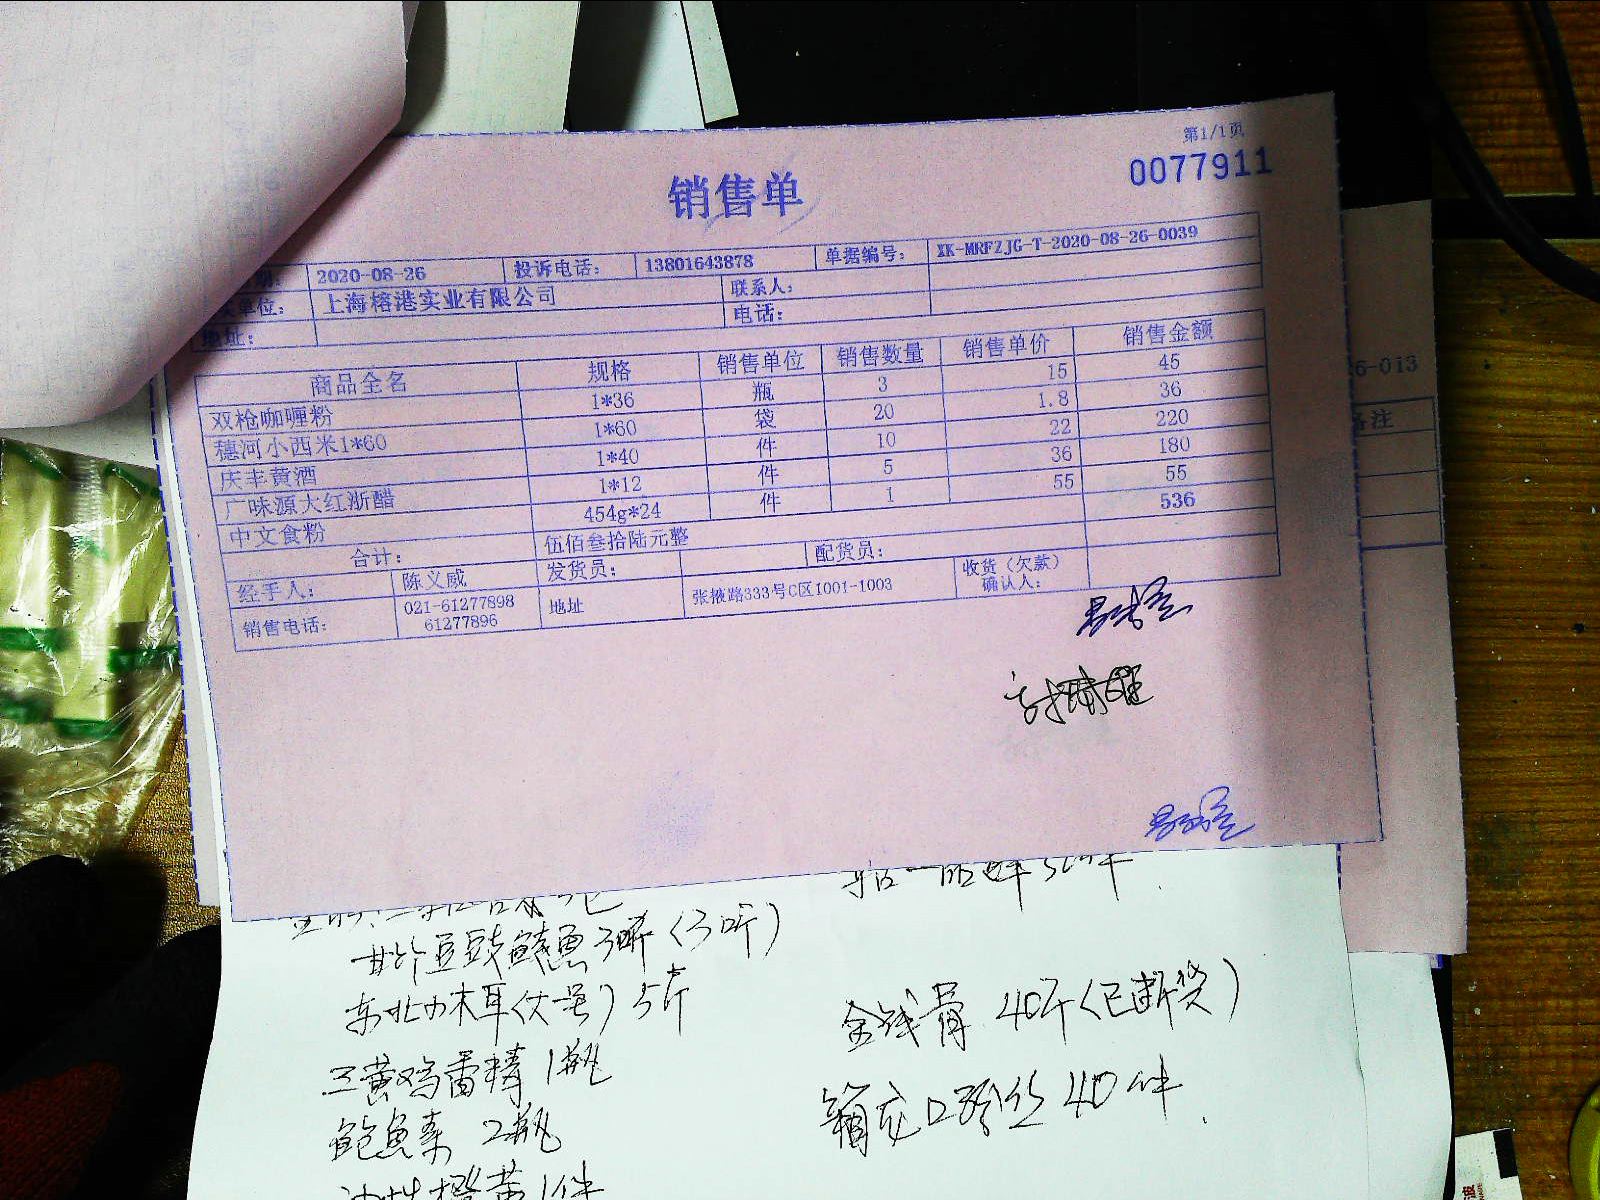 第1/1页
销售单
0077911
期: 2020-08-26 投诉电话: 13801643878 单据编号: XK-MRFZJG-T-2020-08-26-0039
单位: 上海榕港实业有限公司 联系人:
地址: 电话:
商品全名 规格 销售单位 销售数量 销售单价 销售金额
双枪咖喱粉 1*36 瓶 3 15 45
穗河小西米1*60 1*60 袋 20 1.8 36
庆丰黄酒 1*40 件 10 22 220
广味源大红浙醋 1*12 件 5 36 180
中文食粉 454g*24 件 1 55 55
合计: 伍佰叁拾陆元整 536
经手人: 陈义威 发货员: 配货员: 收货(欠款)确认人:
销售电话: 021-61277898 61277896 地址 张掖路333号C区1001-1003
6-013
备注
豆豉鲮鱼 3听(3听)
东北小木耳(大号) 5斤
三黄鸡香精 1瓶
鲍鱼素 2瓶
橙黄 1件
金钱骨 40斤(已断货)
40件